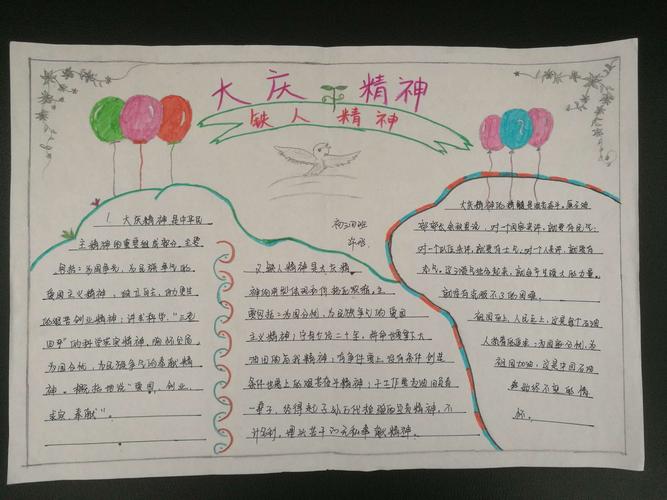 大庆精神
铁人精神
1. 大庆精神是中华民
精神的重要组成部分。主要
包括:为国争光,为民族争气的
爱国主义精神,独立自主,自力更生
的艰苦创业精神;讲求科学,"三老
四严"的科学求实精神,胸怀全局
为国分忧,为民族争气的奉献精
神。概括地说"爱国、创业、
求实、奉献"。
2.铁人精神是大庆精
神的典型体现和 主
要包括:为国分忧、为民族争气的爱国
主义精神;宁肯少活二十年,拼命也要拿下大
油田的忘我精神;有条件要上,没有条件创造
条件也要上的艰苦奋斗精神;干工作要为油田负责
一辈子,经得起子孙万代检验的负责精神,不
计名利,埋头苦干的无私奉献精神。
大庆精神的精髓是艰苦奋斗。原石油
部部长余秋里说,对一个国家来讲,就要有民气;
对一个队伍来讲,就要有士气;对一个人来讲,就要有
志气。这三股气结合起来,就会产生强大的力量。
就没有克服不了的困难。
祖国至上,人民至上,这是每个石油
人的追求;为国家分忧,为
祖国加油,这是中国石油
始终不变的情
怀。